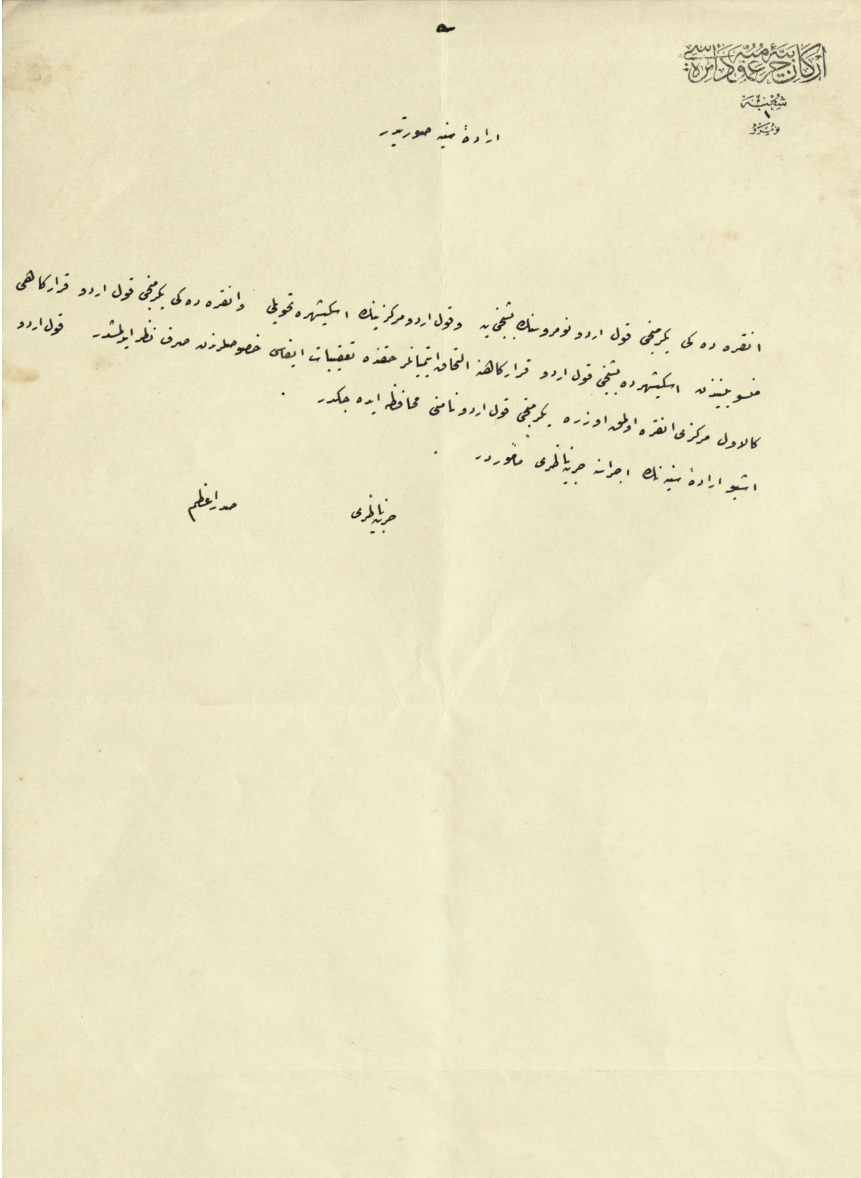 اركان حربيهٔ عموميه دائره سی
شعبه
١
نومرو
ارادهٔ سنيه صورتيدر
انقره ده كی يكرمنجی قول اردو نومروسنك بشنجی يه وقول اردو مركزينك اسكيشهره تحويلی وانقره ده كی يكرمنجی قول اردو قراركاهی
منسوبيننذن اسكيشهرده بشنجی قول اردو قراركاهنه التحاق ايتميانلر حقنده تعقيبات ايفاسی خصوصلرندن صرف نظر ايدلمشدر قول اردو
كالاول مركزی انقره اولمق اوزره يكرمنجی قول اردو نامنی محافظه ايده جكدر .
اشبو ارادهٔ سنيه نك اجراسنه حربيه ناظری مأموردر .
حربيه ناظری صدراعظم